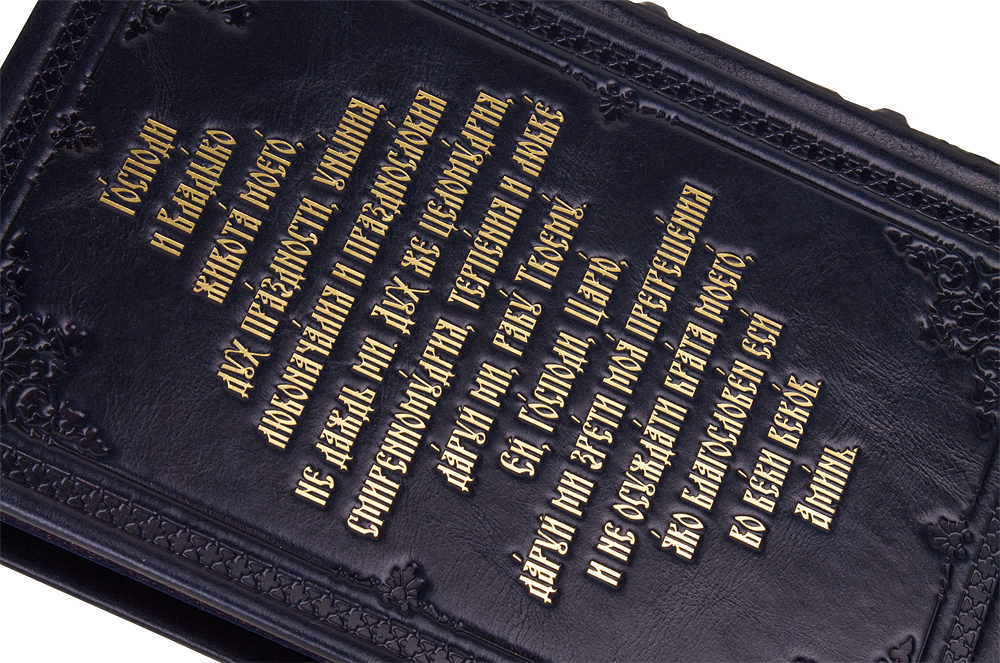 Го́споди
и Влады́ко
живота́ моего́,
дух пра́здности, уны́ния,
любонача́лия и праздносло́вия
не даждь ми. Дух же целому́дрия,
смиренному́дрия, терпе́ния и любве́
да́руй ми, рабу́ Твоему́.
Ей, Го́споди, Царю́,
да́руй ми зре́ти моя́ прегреше́ния
и не осужда́ти бра́та моего́,
я́ко благослове́н еси́
во ве́ки веко́в.
Ами́нь.